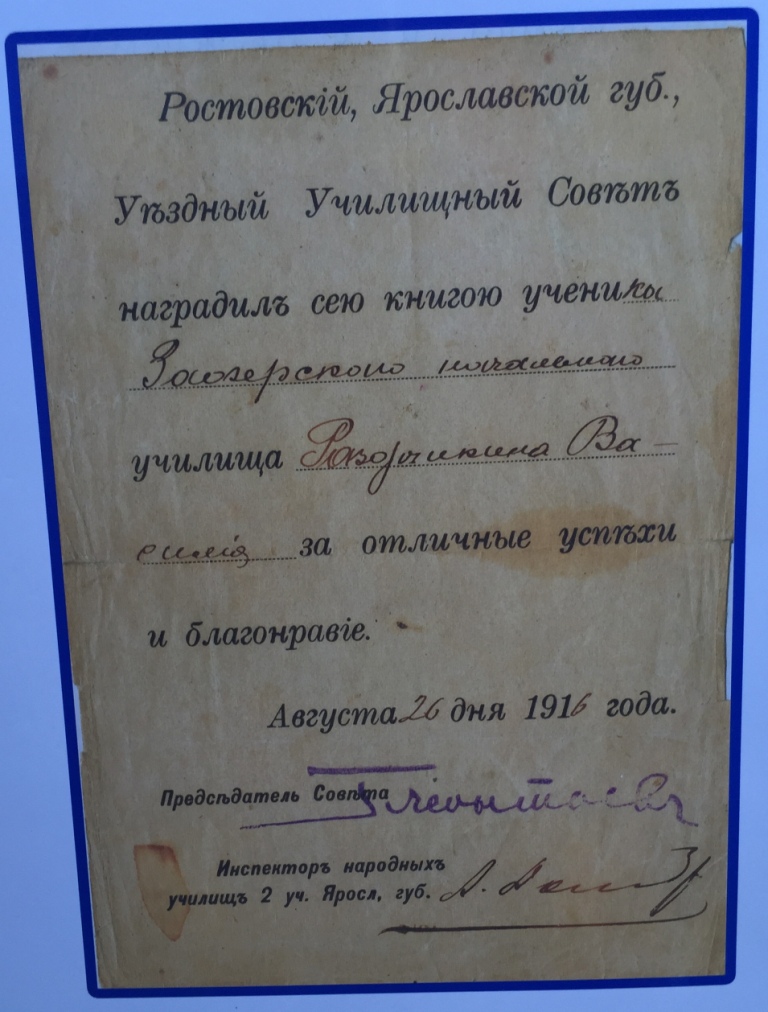 Ростовскій, Ярославской губ.,
Уѣздный Училищный Совѣтъ
наградилъ сею книгою ученика
Заозерского начальнаго
училища Разорчикина Ва-
силія за отличные успѣхи
и благонравіе.
Августа 26 дня 1916 года.
Предсѣдатель Совѣта
Инспекторъ народныхъ
училищъ 2 уч. Яросл, губ.